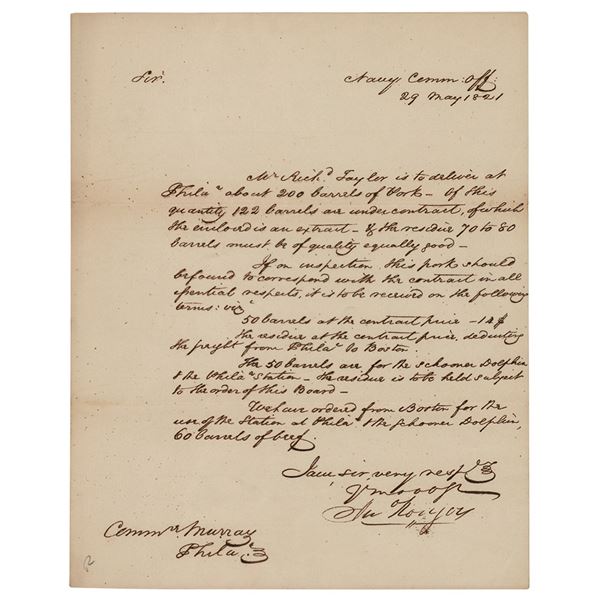 Sir.
Navy Comm: Off:
29 May 1821
Mr Richd. Taylor is to deliver at
Philaa about 200 barrels of Pork — Of this
quantity 122 barrels are under contract, of which
the enclosed is an extract — & the residue 70 to 80
barrels must be of quality equally good —
If on inspection this pork should
be found to correspond with the contract in all
essential respects, it is to be received on the following
terms: viz
50 barrels at the contract price — 14 $
The residue at the contract price, deducting
the freight from Phila. to Boston.
The 50 barrels are for the Schooner Dolphin
& the Phila. Station — the residue is to be held subject
to the order of this Board —
We have ordered from Boston for the
use of the Station at Phila. & the Schooner Dolphin,
60 barrels of beef.
I am, sir, very resp
Jno Rodgers
Commre. Murray
Phila.